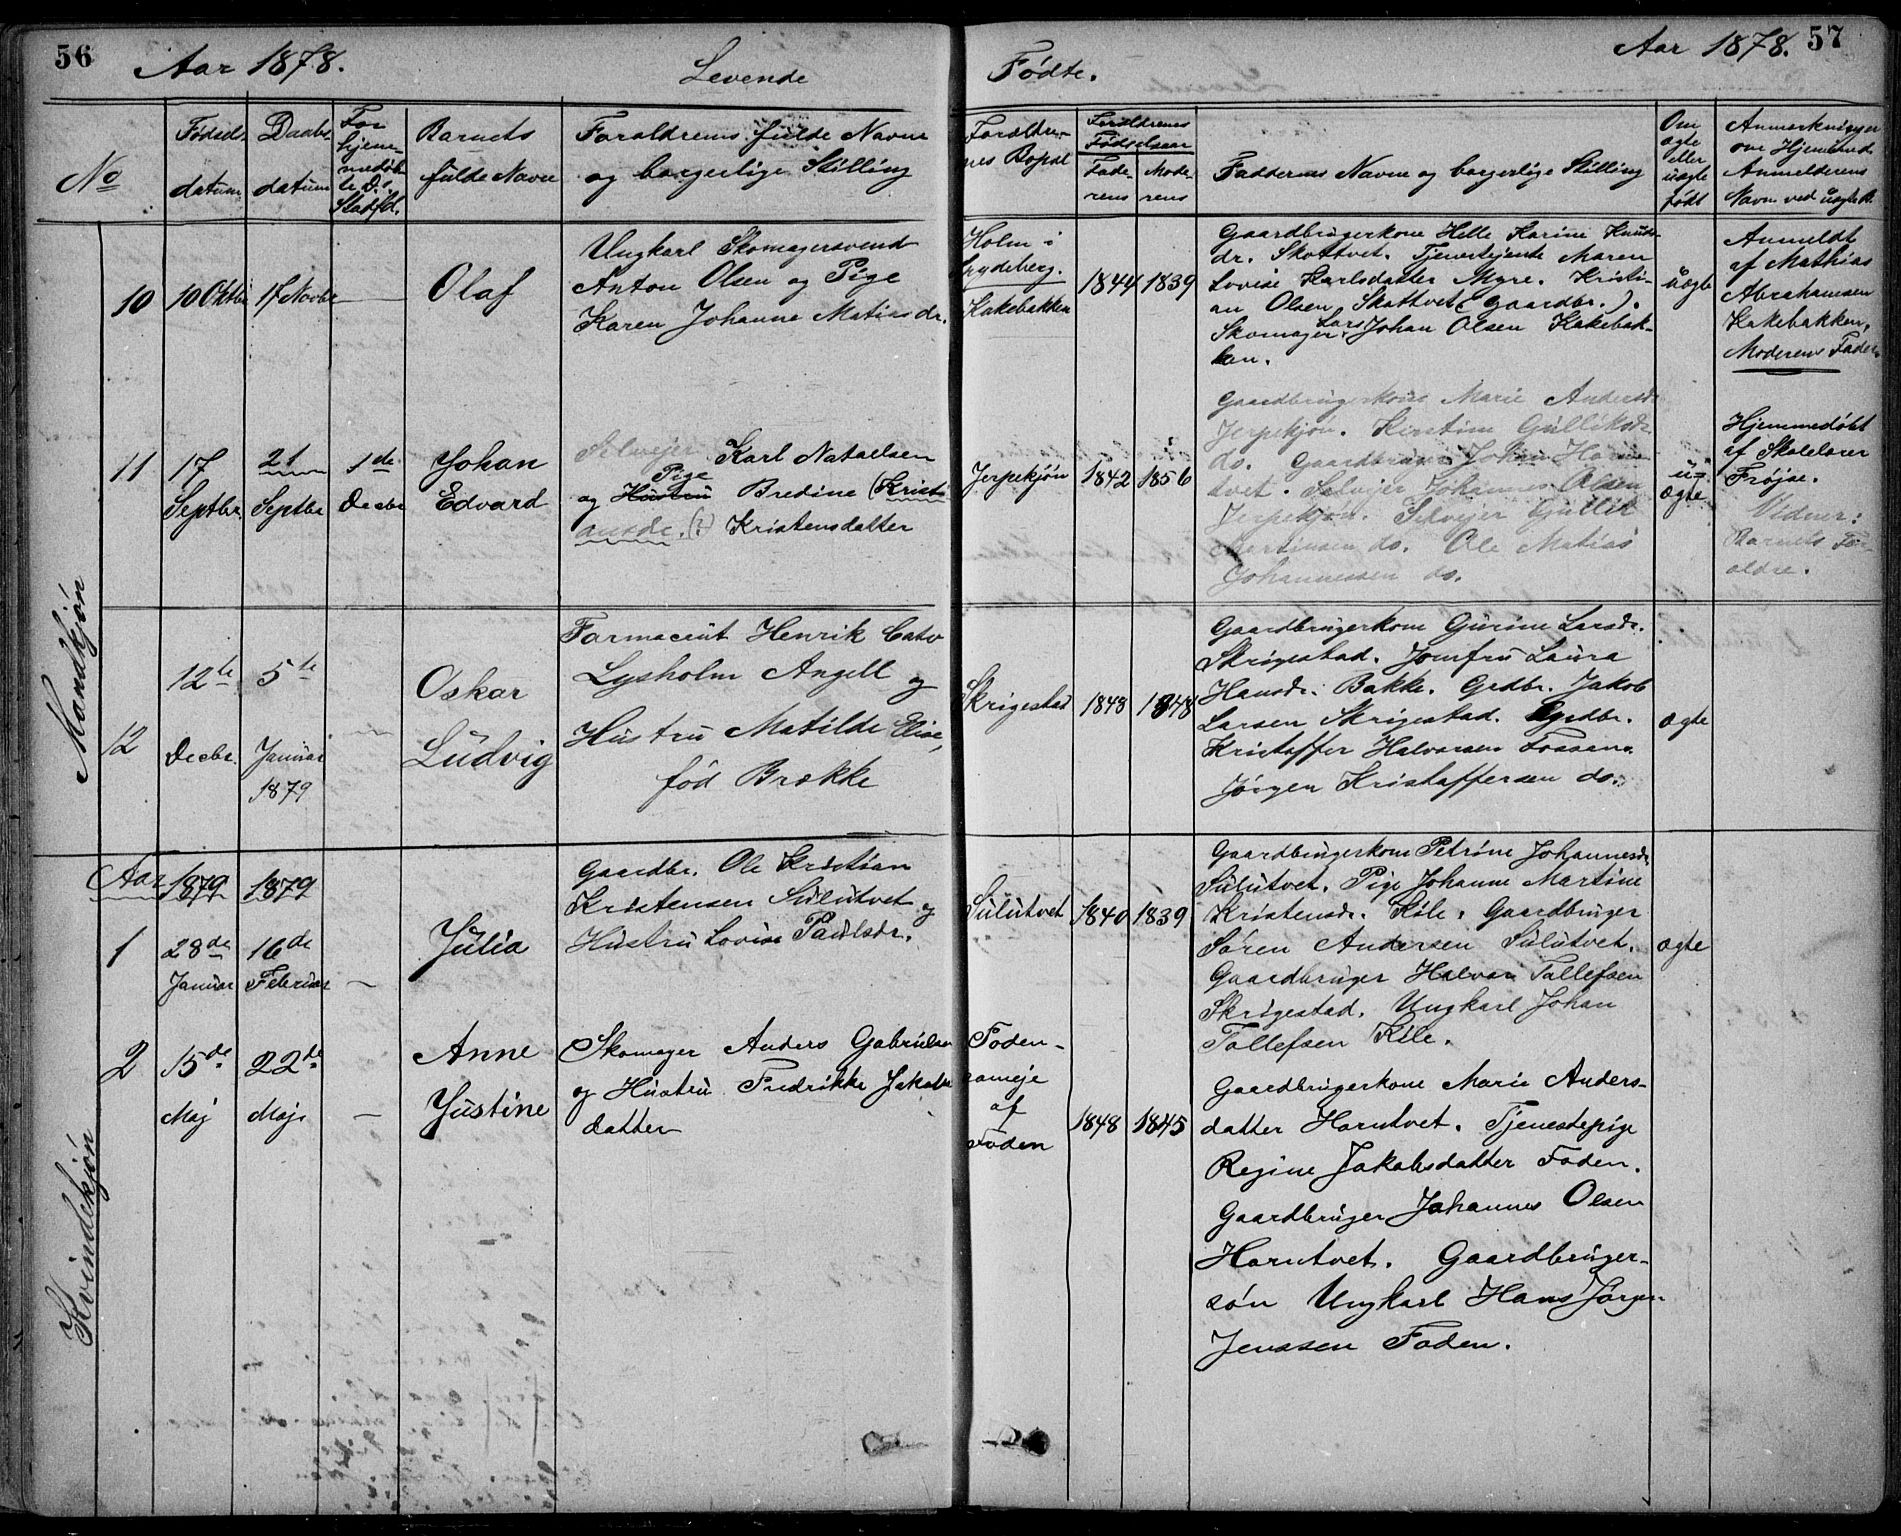 56
Aar 1878.
Levende
Fødte.
Aar 1878.
57
No
Fødsels-
datum
Daabs-
datum
For
hjem-
medøb-
te D.s
Stadfd.
Barnets
fulde Navn
Forældrenes fulde Navne
og borgerlige Stilling
Forældre-
nes Bopæl
Forældrenes
Fødselsaar
Fade-
rens
Mode-
rens
Faddernes Navne og borgerlige Stilling
Om
ægte
eller
uægte
født
Anmærkninger
om Hjemmed.
Anmelderens
Navn ved uægte B.
Mandkjøn
10
10 Oktbr
17 Novbr
—
Olaf
Ungkarl Skomagersvend
Anton Olsen og Pige
Karen Johanne Matiasdr.
Holm i
Spydeberg.
Kakebakken
1844
1839
Gaardbrugerkone Helle Karine Knuds-
dr. Skottvet. Tjenestejente Maren
Lovise Karlsdatter Myre. Kristi-
an Olsen Skottvet (Gaardbr.).
Skomager Lars Johan Olsen Kakebak-
ken.
uægte
Anmeldt
af Mathias
Abrahamsen
Kakebakken,
Moderens Fader.
11
17
Septbr.
21
Septbr
1de
Decbr
Johan
Edvard
Selvejer Karl Nataelsen
Pige
og Hustru Bredine (Krist-
ansdr. (?) Kristensdatter
Jerpekjøn
1842
1856
Gaardbrugerkone Marie Andersdr
Jerpekjøn. Kirstine Gulliksdr
do. Gaardbruger Johan Harnt-
vet. Selvejer Johannes Olsen
Jerpekjøn. Selvejer Gullik
Martinsen do. Ole Matias
Johannessen do.
u-
ægte
Hjemmedøbt
af Skolelærer
Frøjse.
Vidner:
Barnets For-
ældre.
12
12te
Decbr.
5te
Januar
1879
—
Oskar
Ludvig
Farmaceut Henrik Cato
Lysholm Angell og
Hustru Matilde Elise,
fød Brække
Skrigestad
1848
1848
Gaardbrugerkone Gurine Larsdr.
Skrigestad. Jomfru Laura
Hansdr. Bakke. Grdbr. Jakob
Larsen Skrigestad. Grdbr.
Kristoffer Halvorsen Fossen.
Jørgen Kristoffersen do.
ægte
Aar 1879
1879
Kvindekjøn
1
28de
Januar
16de
Februar
—
Julia
Gaardbr. Ole Kristian
Kristensen Sulutvet og
Hustru Lovise Paulsdr.
Sulutvet
1840
1839
Gaardbrugerkone Petrine Johannesdr.
Sulutvet. Pige Johanne Martine
Kristensdr. Kile. Gaardbruger
Søren Andersen Sulutvet.
Gaardbruger Halvor Tollefsen
Skrigestad. Ungkarl Johan
Tollefsen Kile.
ægte
2
15de
Maj
22de
Maj
—
Anne
Justine
Skomager Anders Gabrielsen
og Hustru Fredrikke Jakobs-
datter
Foden-
sameje
af
Foden
1848
1845
Gaardbrugerkone Marie Anders-
datter Harntvet. Tjenestepige
Regine Jakobsdatter Foden.
Gaardbruger Johannes Olsen
Harntvet. Gaardbruger-
søn Ungkarl Hans Jørgen
Jenssen Foden.